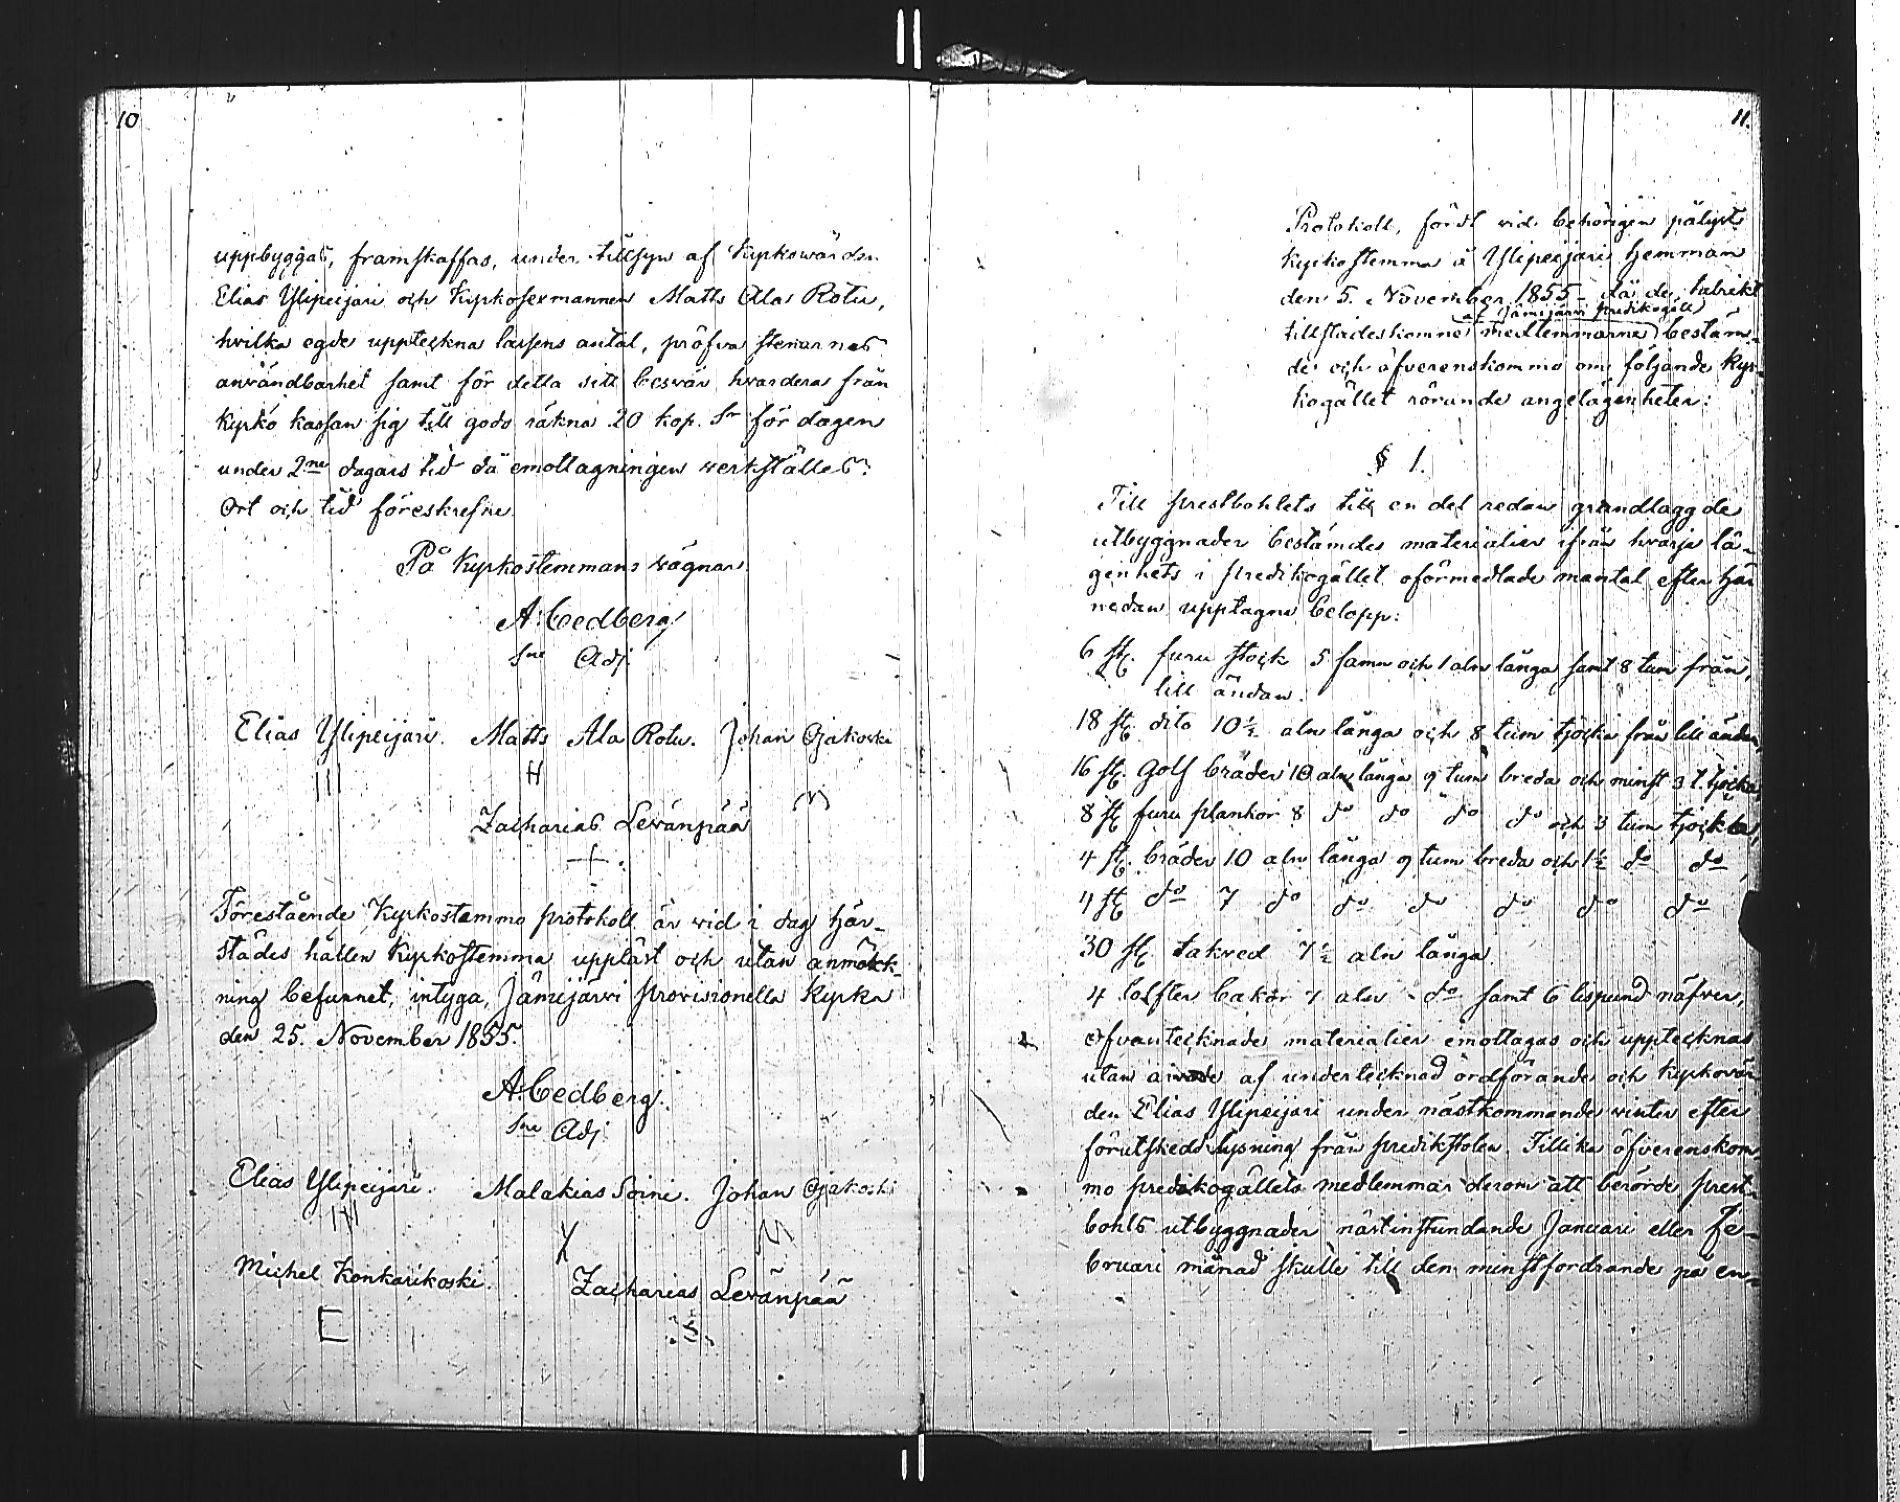 10
uppbyggas, framskaffas, under tillsyn af Kyrkowärden
Elias Ylipeijari och Kyrkosexmannen Matts Ala Rotu,
hvilka egde uppteckna lassens antal, pröfva stenarnas
användbarhet samt för detta sitt besvär hvardera från
Kyrko kassan sig till godo räkna 20 kop. Sr för dagen
under 2ne dagars tid då emottagningen verkställes.
Ort och tid föreskrefne.
På Kyrkostemmans vägnar.
A: Cedberg
Sne Adj.
Elias Ylipeijari. Matts Ala Rotu. Johan Ojakoski
Zacharias Levänpää
Förestående Kyrkostemmo protokoll är wid i dag här-
städes hållen Kyrkostemma uppläst och utan anmärk-
ning befunnet, intyga, Jämijärvi provisionella Kyrka
den 25. November 1855.
A: Cedberg.
Sne Adj
Elias Ylipeijari. Malakias Soini. Johan Ojakoski
Michel Konkarikoski. Zacharias Levänpää
11.
Protokoll, fördt vid behörigen pålyst
Kyrkostemma å Ylipeijari hemman
den 5. November 1855 – då de talrikt
af Jämijärvi predikogäll
tillstädeskomne medlemmarne bestäm-
de och öfverenskommo om följande kyr-
kogället rörande angelägenheter:
§ 1.
Till prestbohlets till en del redan grundlagg de
utbyggnader bestämdes materialier ifrån hvarje lä-
genhets i predikogället oförmedlade mantal efter här
nedan upptagne belopp:
6 st. furu stock 5 famn och 1 aln långa samt 8 tum från
lill ändan.
18 st. dito 10½ aln långa och 8 tum tjocka från lill ändan,
16 st. Golf bräder 10 aln långa 9 tum breda och minst 3 t. tjocka,
8 st furu plankor 8 do do do do och 3 tum tjocka,
4 st. bräder 10 aln långa 9 tum breda och 1½ do do,
4 st do 7 do do do do do do
30 st. takved 7½ aln långa
4 tolfter bakor 7 aln do samt 6 lispund näfver,
ofvantecknade materialier emottagas och upptecknas
utan af undertecknad ordförande och kyrkovär
den Elias Ylipeijari under nästkommande vinter efter
förutskedd lysning från predikstolen. Tillika öfverenskom-
mo predikogällets medlemmar derom att berörde prest-
bohls utbyggnader nästinstundande Januari eller Fe-
bruari månad skulle till den minstfordrande på en-